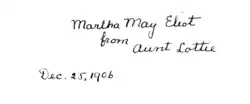 Martha May Eliot
from
Aunt Lottie
Dec. 25, 1906